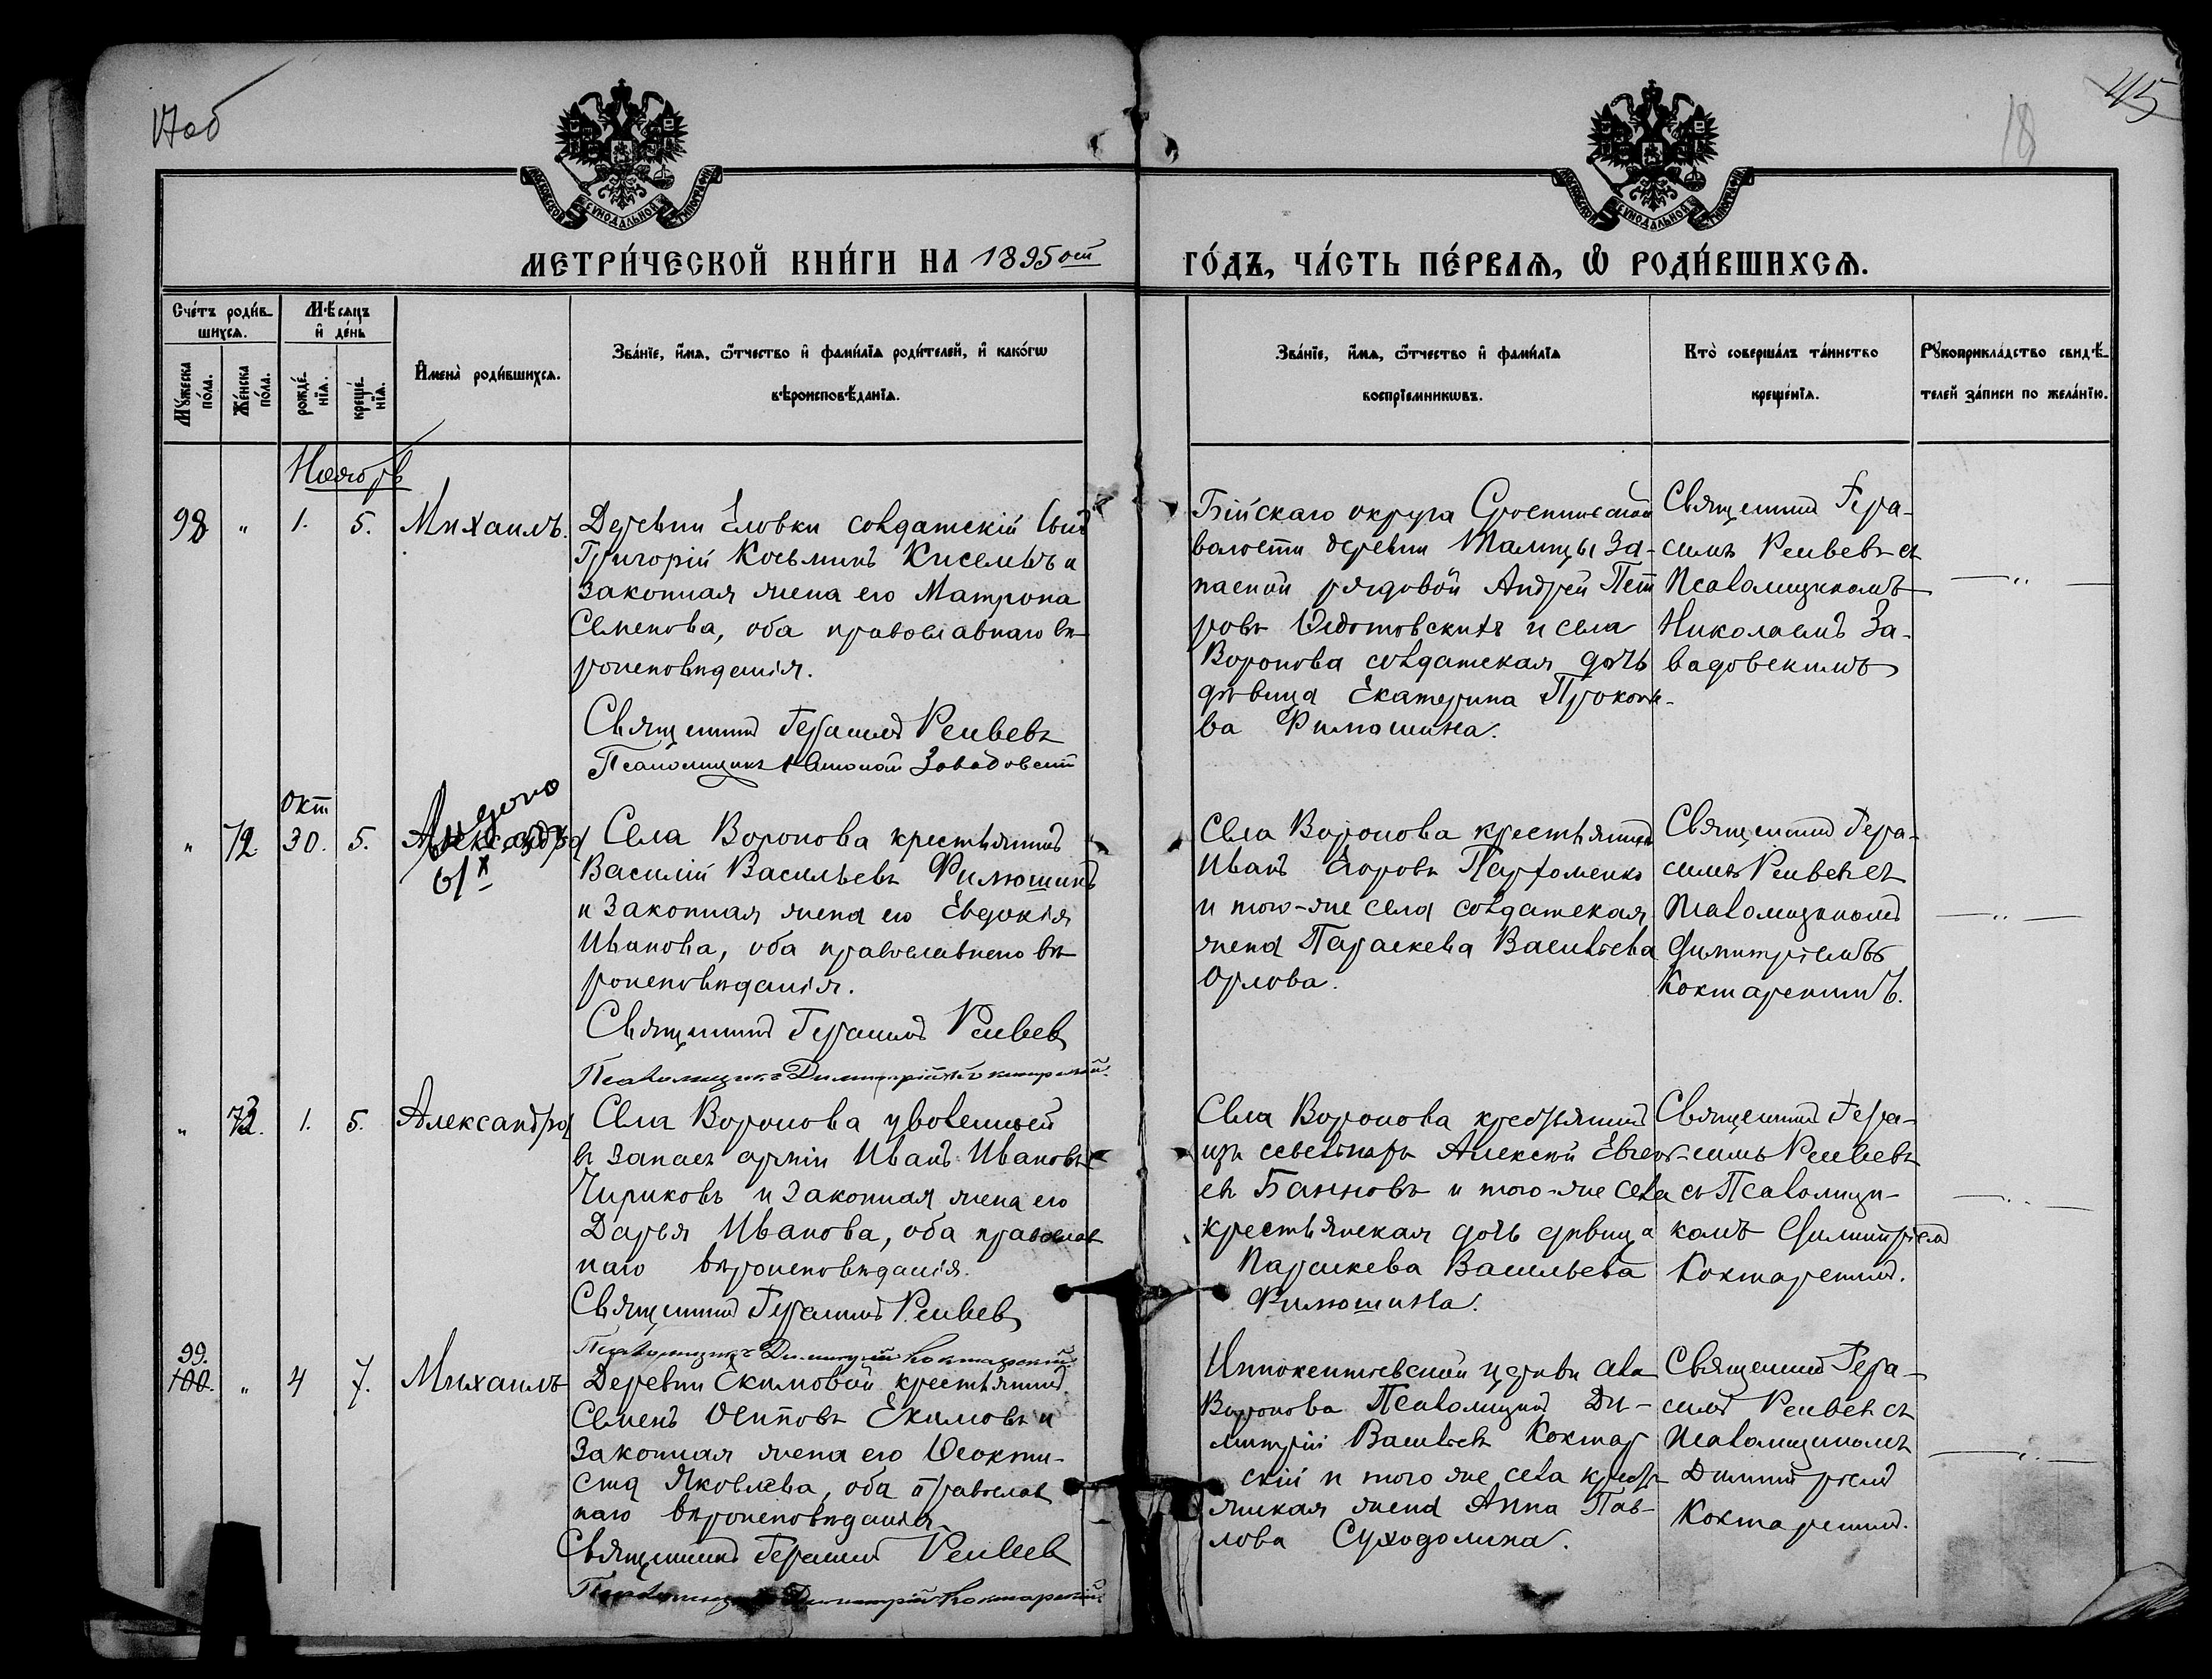 17 об
45
18
МЕТРИ́ЧЕСКОЙ КНИ́ГИ НА 1895 ой
ГО́ДЪ, ЧА́СТЬ ПЕ́РВАѦ, Ѿ РОДИ́ВШИХСѦ.
Сче́тъ роди́в-
шихсѧ.
Мꙋ́жеска по́ла.
Же́нска по́ла.
Мѣ́сѧцъ и҆ де́нь
рожде́-нїѧ.
креще́-нїѧ.
И҆мена̀ роди́вшихсѧ.
Зва́нїе, и҆́мѧ, ѻ҆́тчество и҆ фами́лїѧ роди́телей, и҆ како́гѡ
вѣроисповѣ́данїѧ.
Зва́нїе, и҆́мѧ, ѻ҆́тчество и҆ фами́лїѧ
воспрїе́мникѡвъ.
Кто̀ соверша́лъ та́инство
креще́нїѧ.
Рꙋкоприкла́дство свидѣ́-
телей за́писи по жела́нїю.
Ноябрь
98 " 1. 5. Михаилъ.
Деревни Еловки солдатскій сынъ
Григорій Козьминъ Киселевъ и
законная жена его Матрона
Семенова, оба православнаго вѣ-
роисповѣданія.
Священникъ Герасимъ
Псаломщикъ Завадовскій
Бійскаго округа
волости деревни Талицы За-
пасной рядовой Андрей Пет
ровъ Ѳедотовскихъ и села
Воронова солдатская дочь
дѣвица Екатерина Прокопь-
ва Филюшина.
Священникъ Гера-
симъ съ
Псаломщикомъ
Николаемъ За-
вадовскимъ
" 72. окт 30. 5. Александра
Села Воронова крестьянинъ
Василій Васильевъ Филюшинъ
и законная жена его Евдокія
Иванова, оба православнаго вѣ-
роисповѣданія.
Священникъ Герасимъ
Псаломщикъ Димитрій Коктарскій.
Села Воронова крестьянинъ
Иванъ Егоровъ Пархоменко
и того-же села солдатская
жена Параскева Васильева
Орлова.
Священникъ Гера-
симъ съ
Псаломщикомъ
Димитріемъ
Коктарскимъ.
" 73. 1. 5. Александра
Села Воронова уволенный
въ запасъ арміи Иванъ Ивановъ
Чириковъ и законная жена его
Дарья Иванова, оба православ
наго вѣроисповѣданія.
Священникъ Герасимъ
Псаломщикъ Димитрій Коктарскій
Села Воронова крестьянинъ
изъ Алексѣй
Банновъ и того-же села
крестьянская дочь дѣвица
Параскева Васильева
Филюшина.
Священникъ Гера-
симъ
съ Псаломщи-
комъ Димитріемъ
Коктарскимъ.
99.
100. " 4 7. Михаилъ
Деревни Екимовой крестьянинъ
Семенъ Осиповъ Екимовъ и
законная жена его Ѳеокти-
ста Яковлева, оба православ
наго вѣроисповѣданія.
Священникъ Герасимъ
Псаломщикъ Димитрій Коктарскій
Иннокентьевской церкви села
Воронова Псаломщикъ Ди-
митрій Васильевъ Коктар
скій и того же села кресть-
янская жена Анна Пав-
лова Суходолина.
Священникъ Гера-
симъ съ
Псаломщикомъ
Димитріемъ
Коктарскимъ.